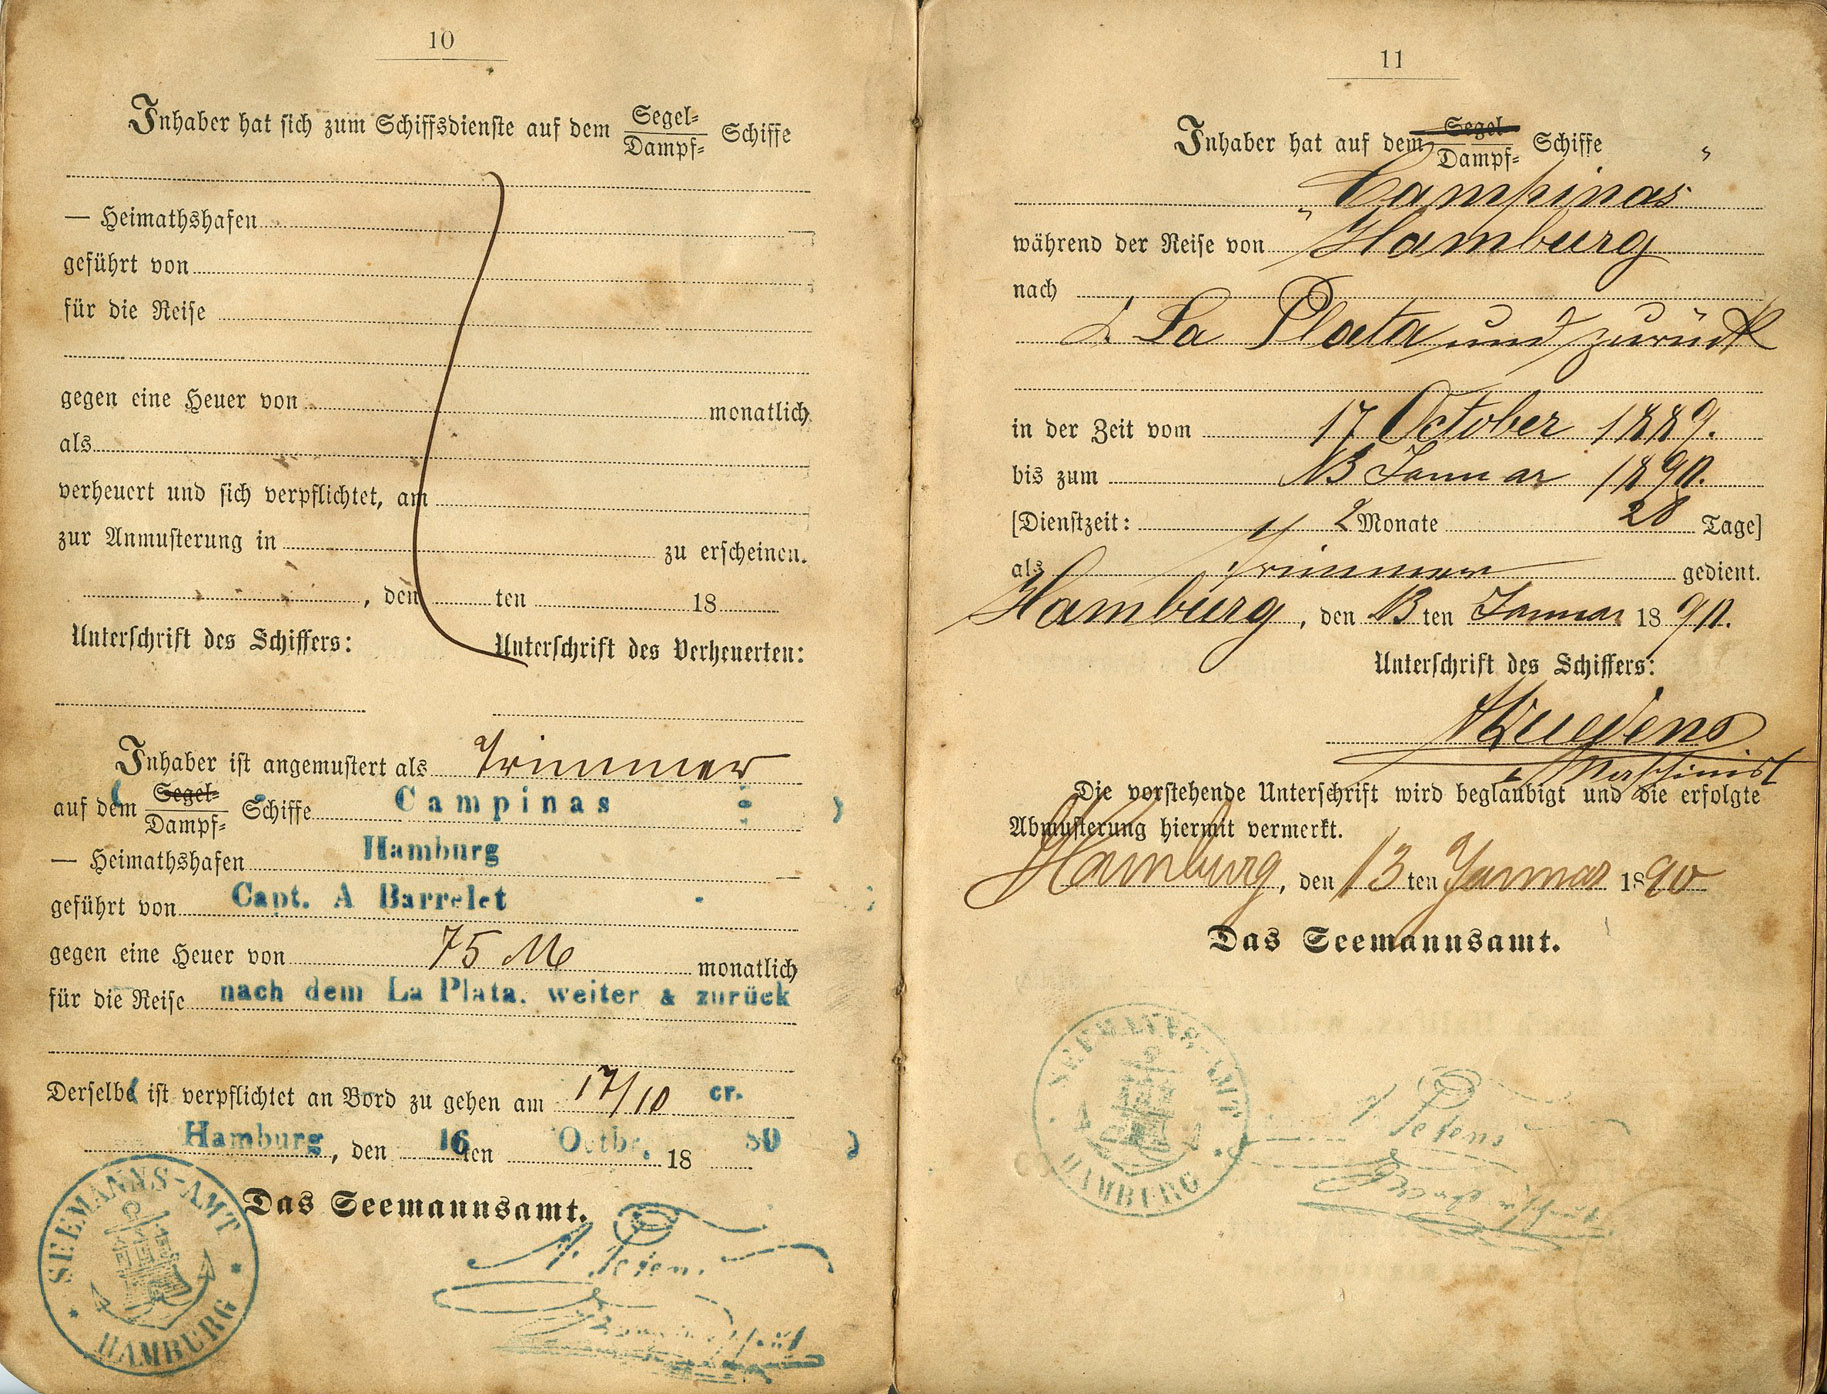 10
Inhaber hat sich zum Schiffsdienste auf dem Segel-
Dampf- Schiffe
— Heimathshafen
geführt von
für die Reise
gegen eine Heuer von monatlich
als
verheuert und sich verpflichtet, am
zur Anmusterung in zu erscheinen.
, den ten 18
Unterschrift des Schiffers: Unterschrift des Verheuerten:
Inhaber ist angemustert als Trimmer
auf dem Segel-
Dampf- Schiffe Campinas
— Heimathshafen Hamburg —
geführt von Capt. A Barrelet
gegen eine Heuer von 75 M monatlich
für die Reise nach dem La Plata. weiter & zurück
Derselbe ist verpflichtet an Bord zu gehen am 17/10 cr.
Hamburg, den 16ten Octbr. 18 89
Das Seemannsamt.
SEEMANNS-AMT
* HAMBURG *
11
Inhaber hat auf dem Segel-
Dampf- Schiffe
„Campinas"
während der Reise von Hamburg
nach
d. La Plata und zurück
in der Zeit vom 17 October 1889.
bis zum 13 Januar 1890.
[Dienstzeit: 2 Monate 28 Tage]
als Trimmer gedient.
Hamburg, den 13ten Januar 1890.
Unterschrift des Schiffers:
Maschinist
Die vorstehende Unterschrift wird beglaubigt und die erfolgte
Abmusterung hiermit vermerkt.
Hamburg, den 13ten Januar 1890
Das Seemannsamt.
SEEMANNS-AMT
* HAMBURG *